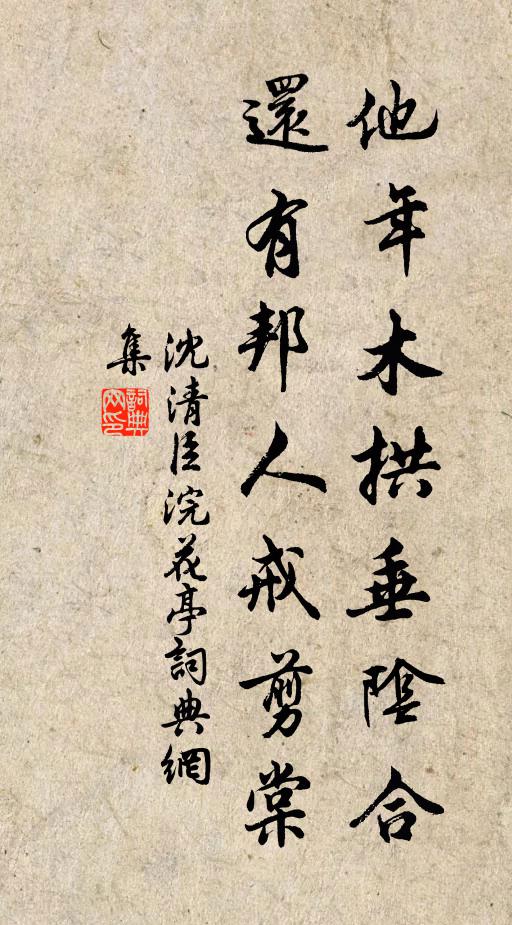 他年木拱垂陰合
還有邦人戒剪棠
沈清臣浣花亭詞典網
集
詞典
网印